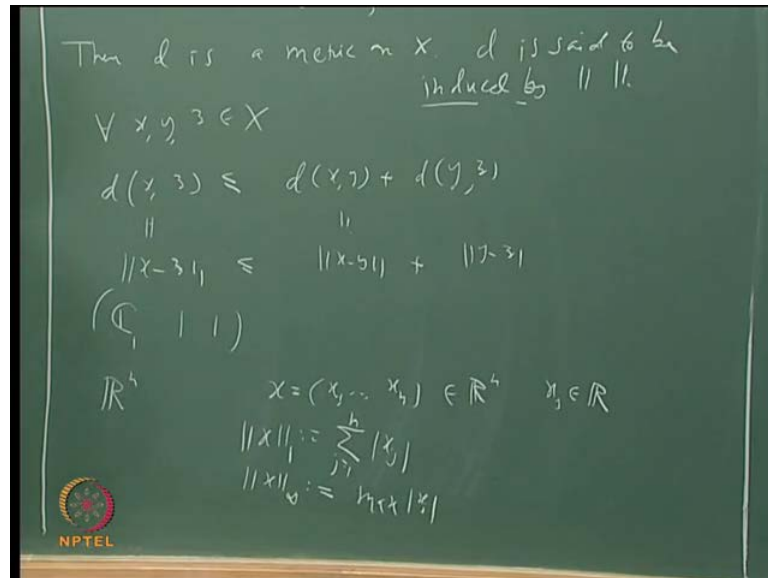 Then d is a metric on X. d is said to be
induced by || ||.
∀ x, y, z ∈ X
d(x, z) ≤ d(x, y) + d(y, z)
|| ||
||x-z|| ≤ ||x-y|| + ||y-z||
(ℂ, | |)
ℝⁿ x = (x₁, ... xₙ) ∈ ℝⁿ xⱼ ∈ ℝ
||x||₁ := ∑ⱼ₌₁ⁿ |xⱼ|
||x||∞ := max |xⱼ|
NPTEL